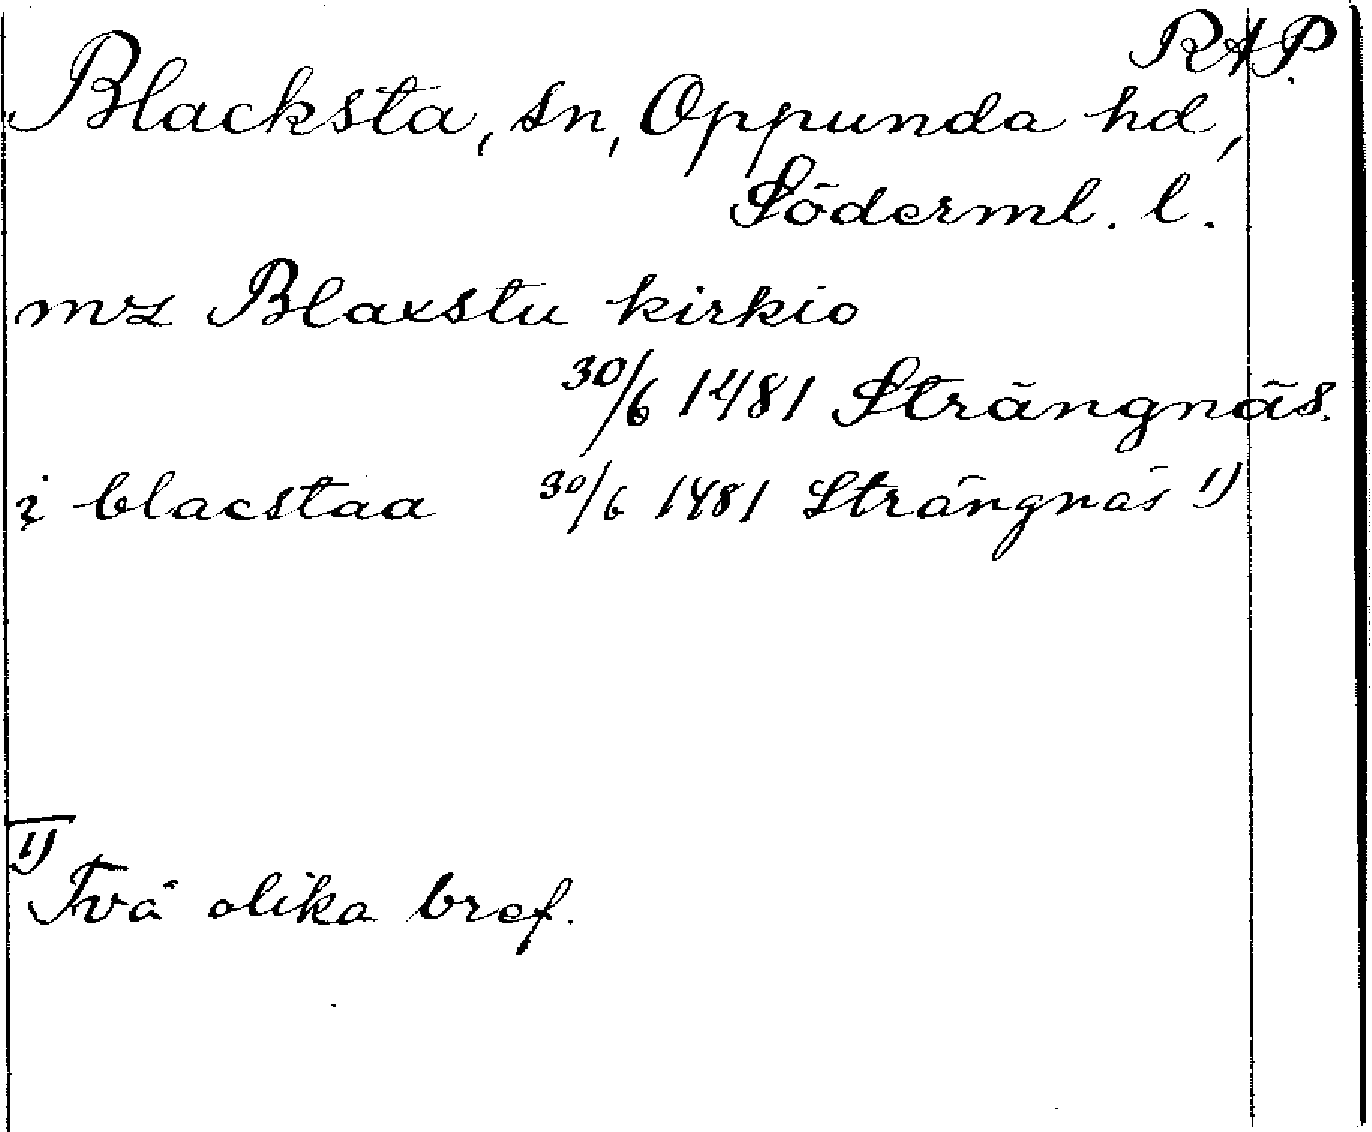 RAP.
Blacksta, sn, Oppunda hd,
Söderml. l.
mz Blaxstu kirkio
30/6 1481 Strängnäs.
i blacstaa 30/6 1481 Strängnäs 1)
1)
Två olika bref.